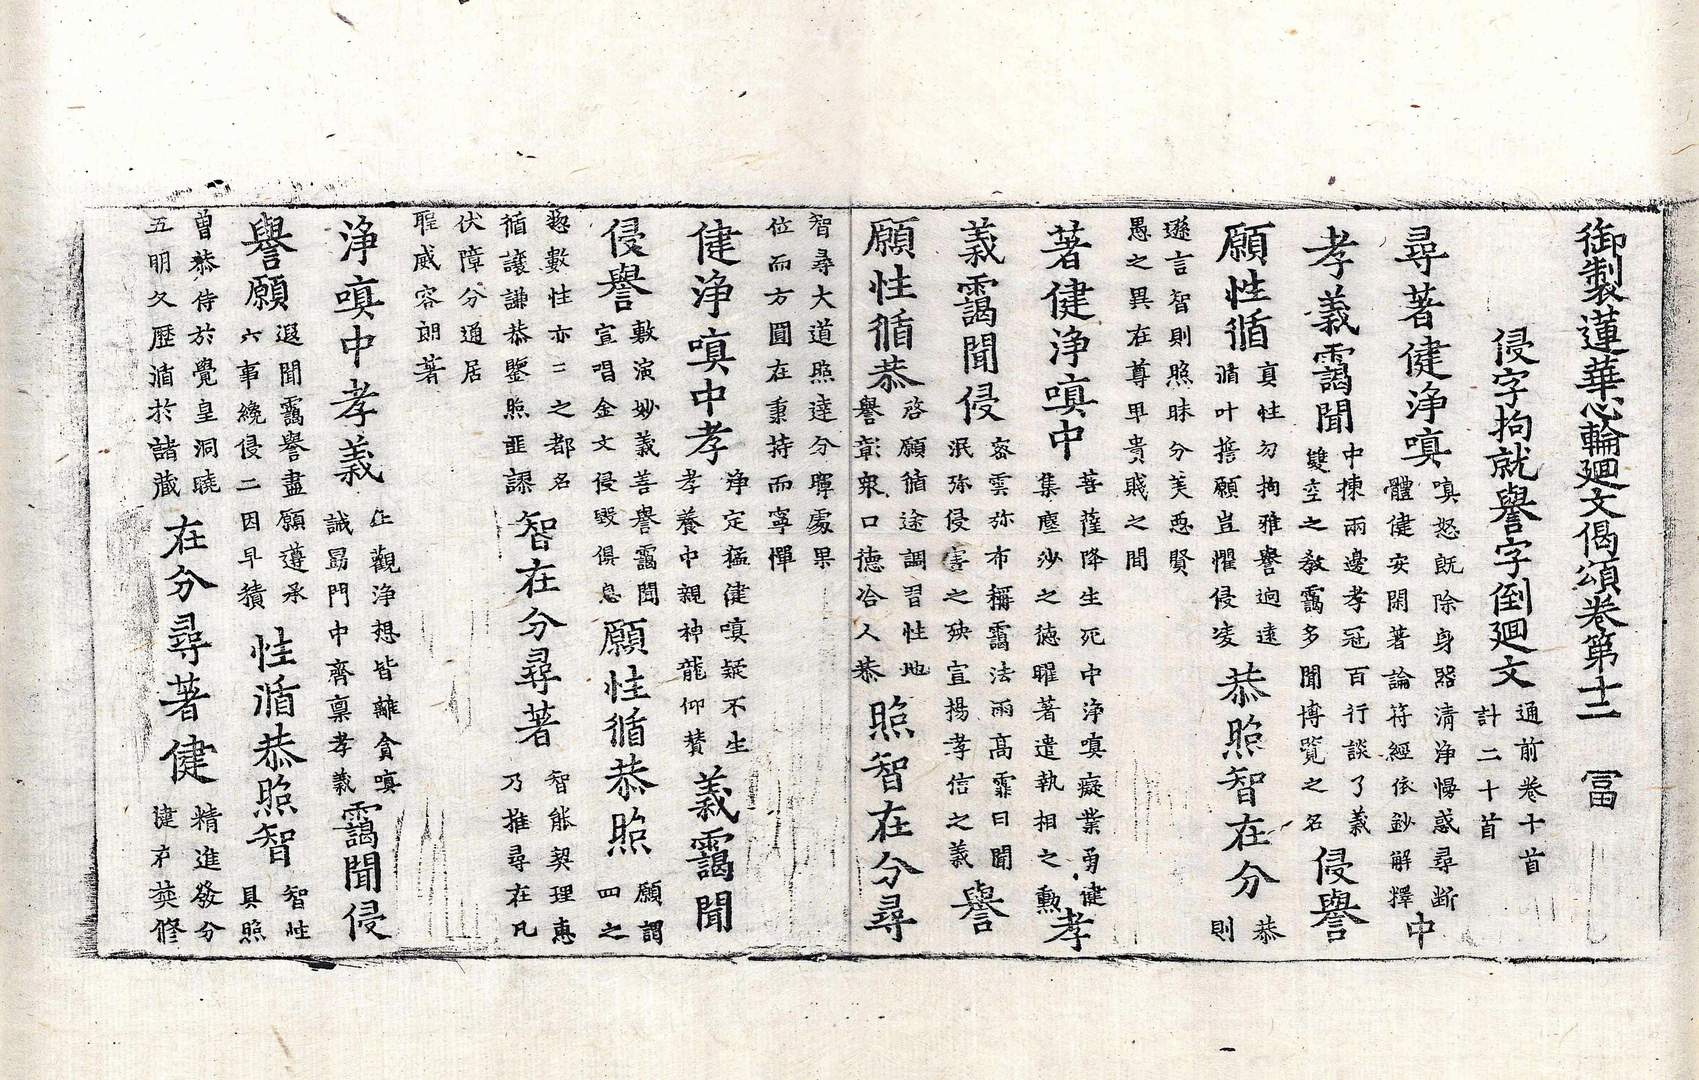 御製蓮華心輪廻文偈頌卷第十二 冨
侵字拘就譽字倒廻文 通前卷十首計二十首
尋著健淨嗔 嗔怒既除身器清淨慢惑尋斷體健安閑著論符經依鈔解釋 中
孝義靄聞 中揀兩邊孝冠百行談了義雙空之教靄多聞博覽之名 侵譽
願性循 真性勿拘雅譽逈遠循叶擔願豈懼侵凌 恭照智在分 恭則
遜言智則照昧分美惡賢
愚之異在尊卑貴賤之間
著健淨嗔中 菩薩降生死中淨嗔癡業勇健集塵沙之德曜著遣執相之勲 孝
義靄聞侵 密雲弥布稱靄法雨高霏曰聞泯弥侵害之殃宣揚孝信之義 譽
願性循恭 啓願循途調習性地譽彰衆口德洽人恭 照智在分尋
智尋大道照達分暉處果
位而方圓在秉持而寧憚
健淨嗔中孝 淨定猛健嗔疑不生孝養中親神龍仰賛 義靄聞
侵譽 敷演妙義善譽靄聞宣唱金文侵毀俱息 願性循恭照 願謂四之
惣數性亦二之都名
循讓謙恭鑒照匪謬 智在分尋著 智能契理惠乃推尋在凡
伏障分通居
聖威容朗著
淨嗔中孝義 止觀淨想皆離貪嗔誠勗門中齊禀孝義 靄聞侵
譽願 遐聞靄譽盡願遵承六事纔侵二因早積 性循恭照智 智性具照
曽恭侍於覺皇洞曉
五明久歷循於諸藏 在分尋著健 精進發分健才奘修